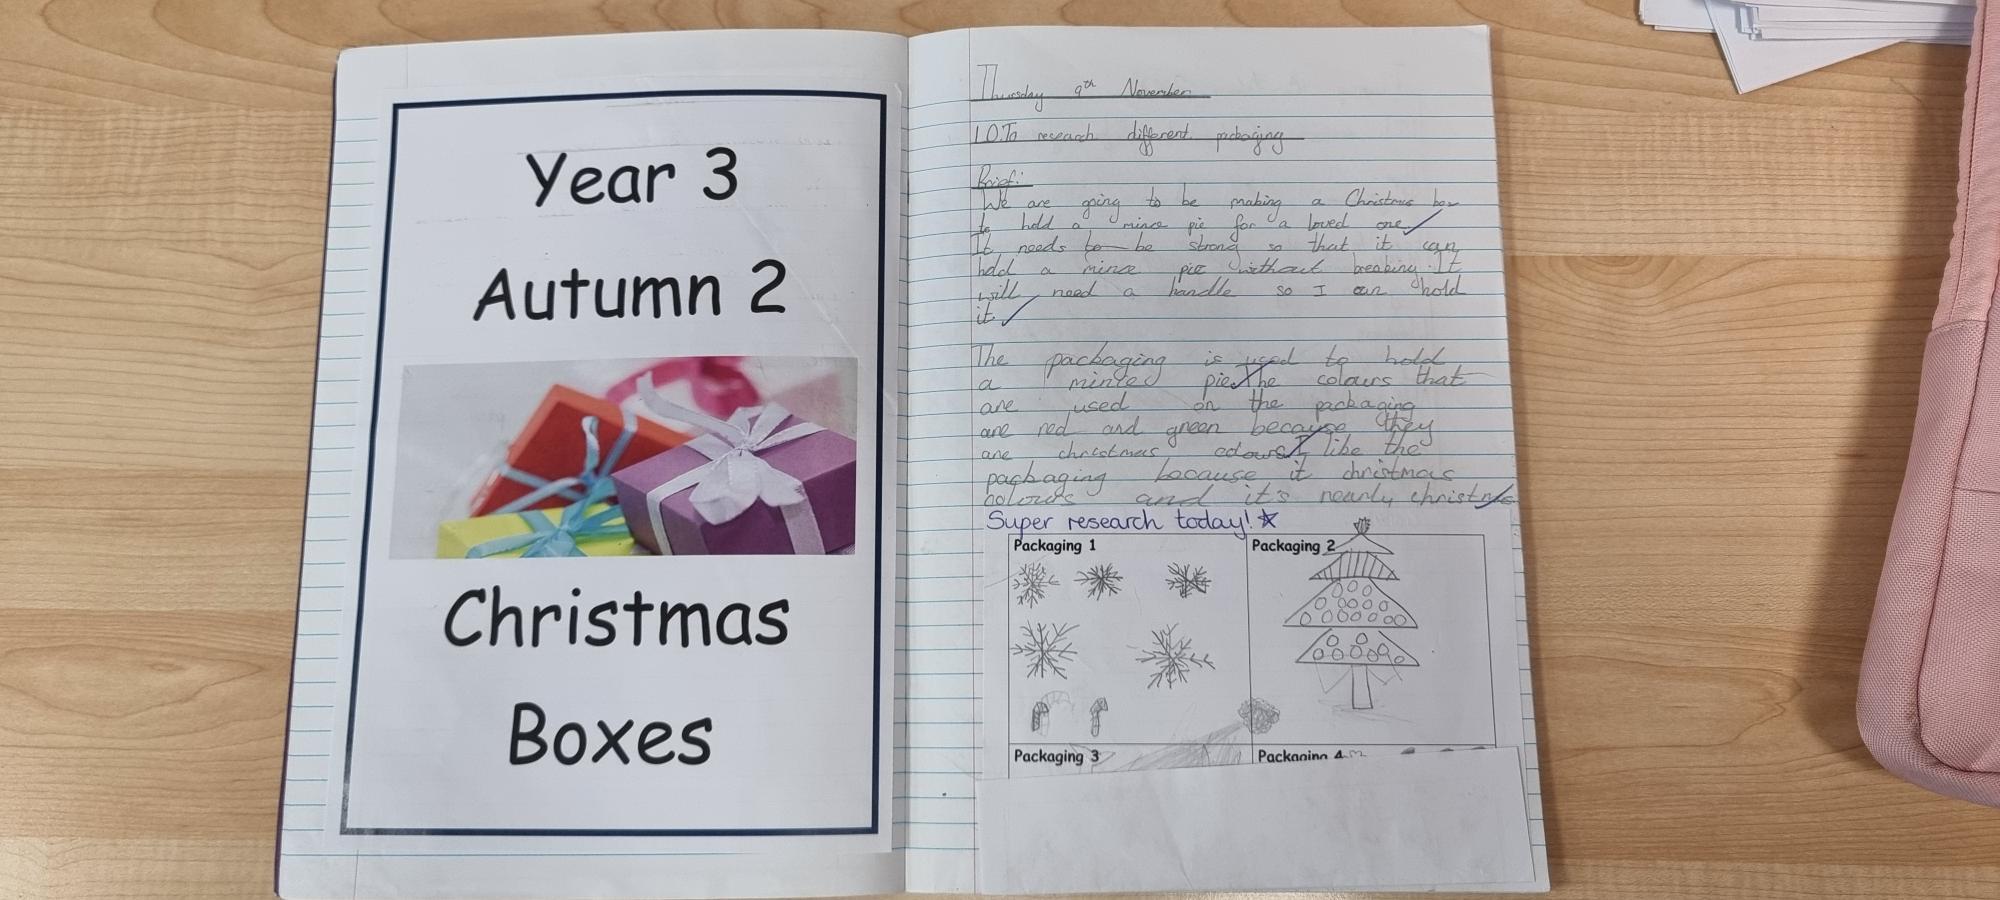 Year 3
Autumn 2
Christmas
Boxes
Thursday 9th November
L.O.To research different packaging
Brief:
We are going to be making a Christmas box
to hold a mince pie for a loved one
It needs to be strong so that it can
hold a mince pie without breaking. It
will need a handle so I can hold
it.
The packaging is used to hold
a mince pie. The colours that
are used on the packaging
are red and green because they
are christmas colours. I like the
packaging because it christmas
colours and it's nearly christmas
Super research today!
Packaging 1
Packaging 2
Packaging 3
Packaging 4